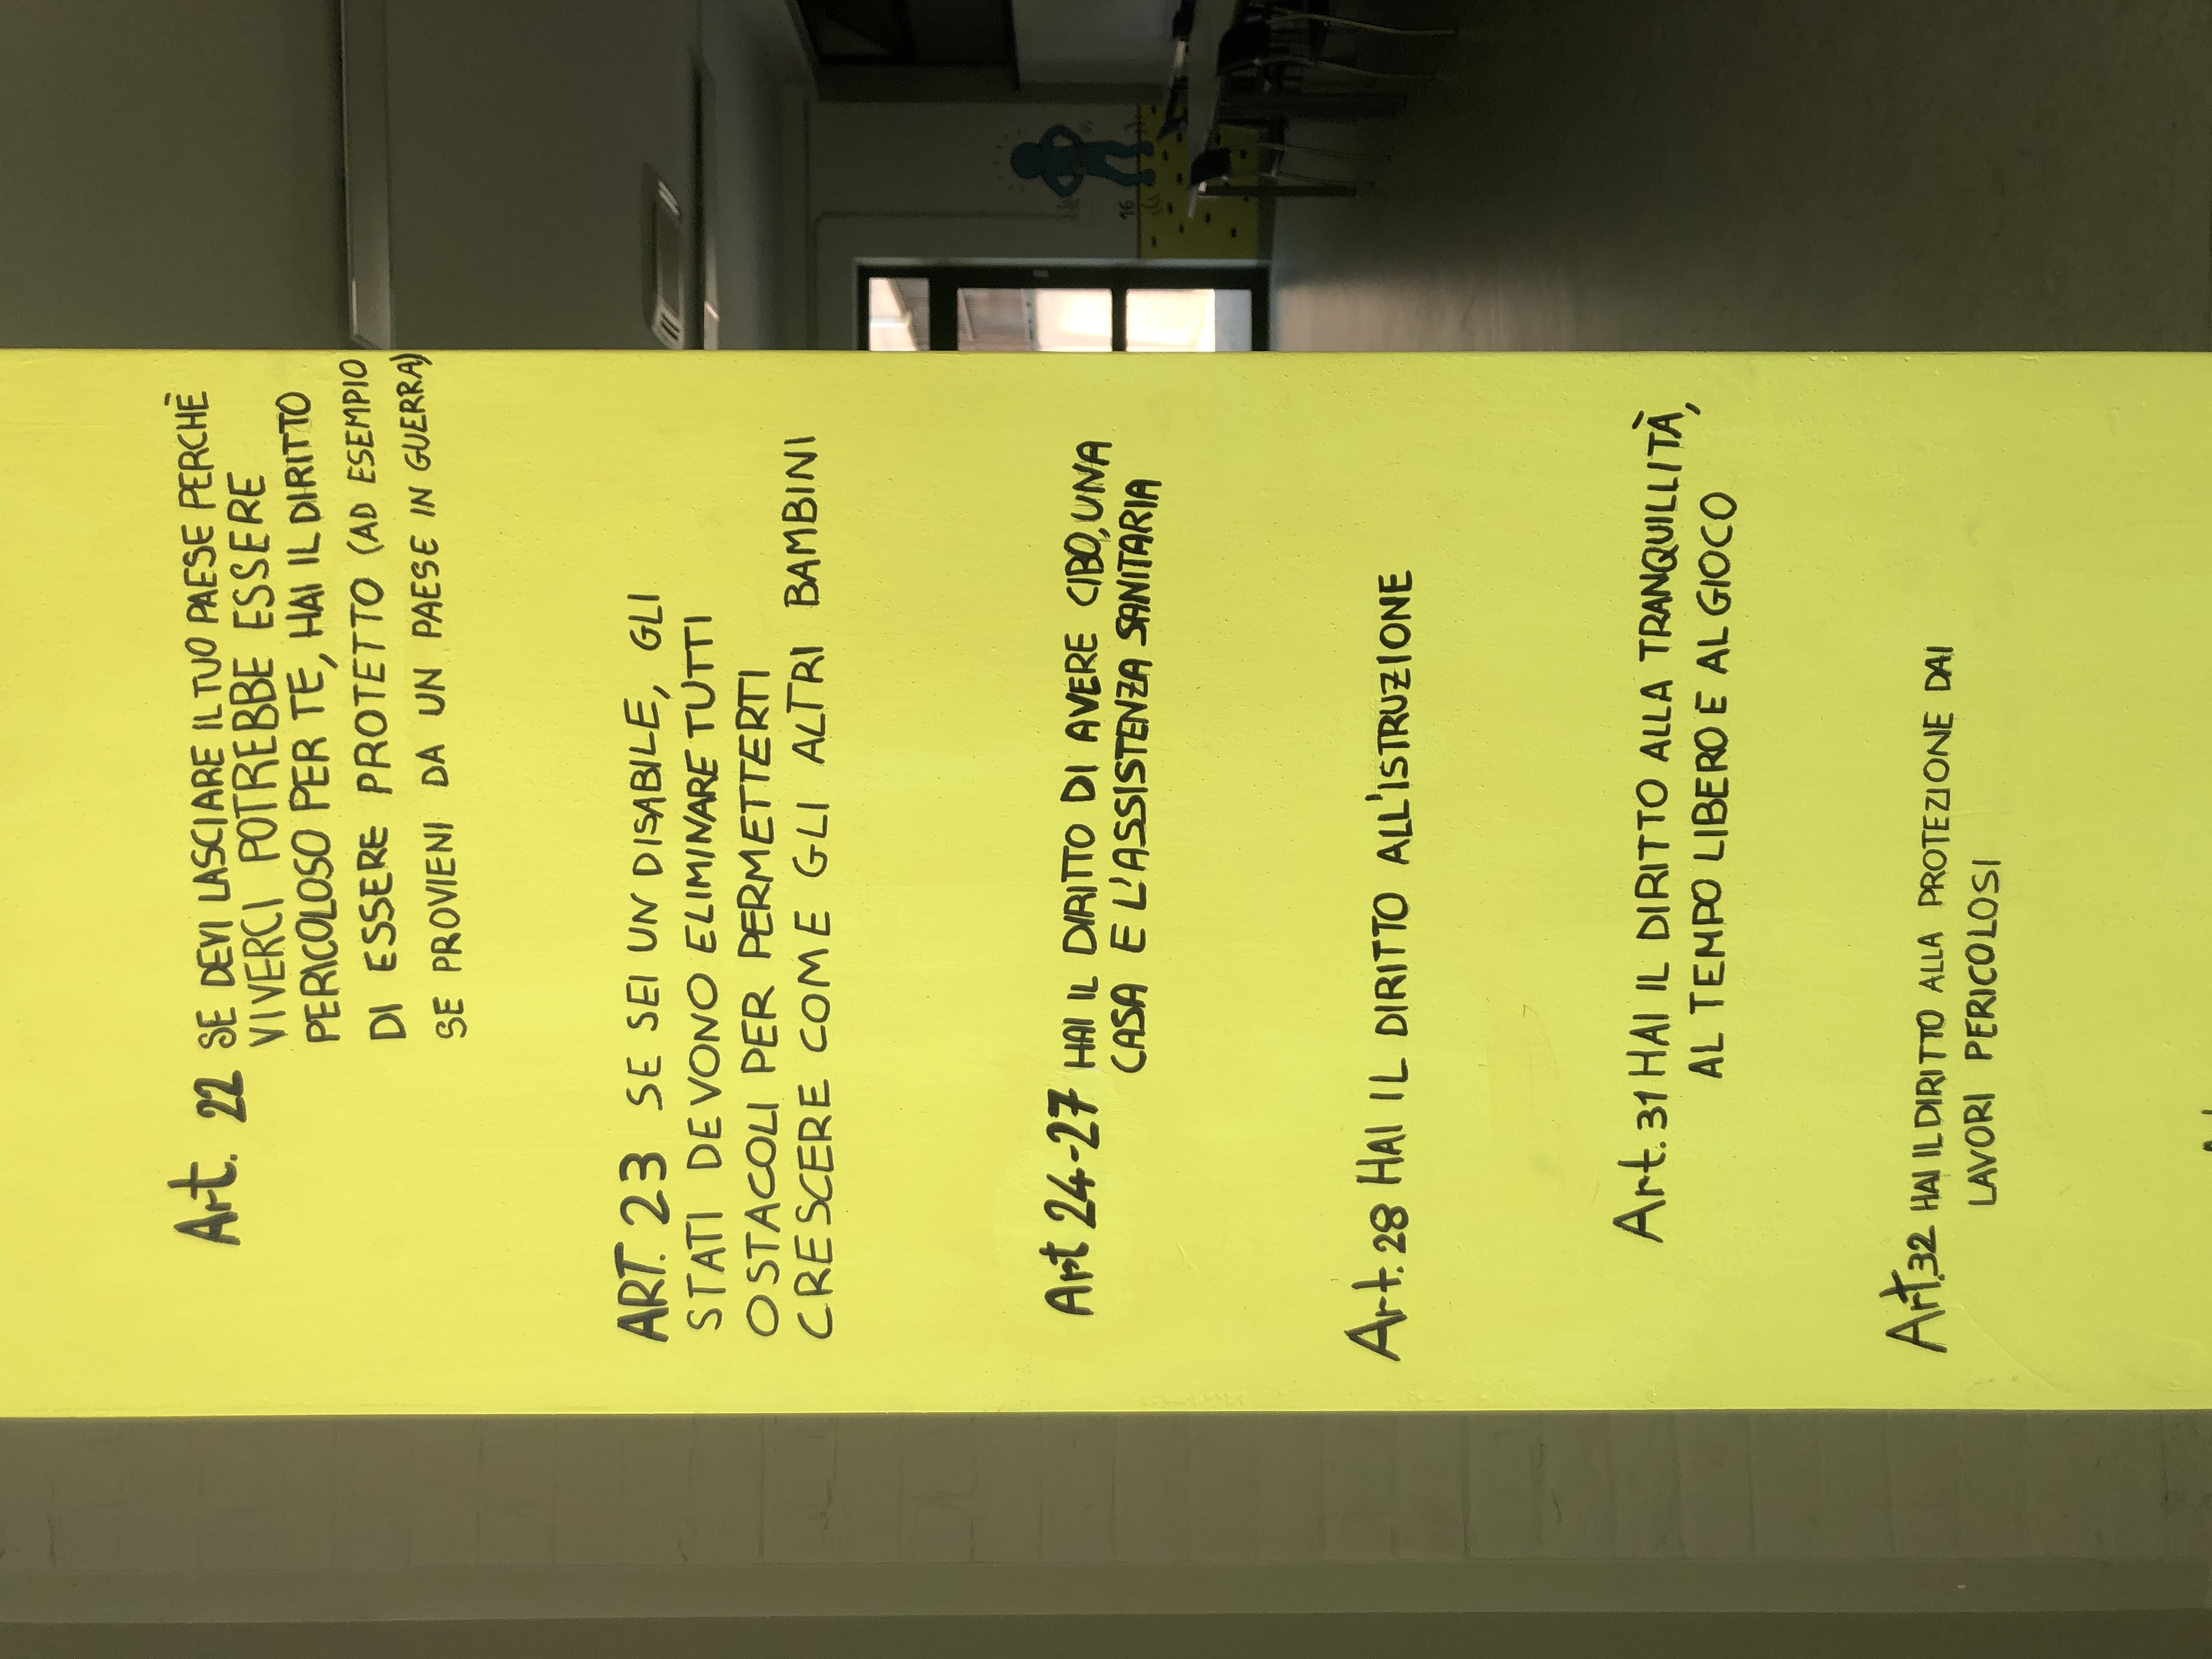 Art. 22 SE DEVI LASCIARE IL TUO PAESE PERCHÈ
VIVERCI POTREBBE ESSERE
PERICOLOSO PER TE, HAI IL DIRITTO
DI ESSERE PROTETTO (AD ESEMPIO
SE PROVIENI DA UN PAESE IN GUERRA)
ART. 23 SE SEI UN DISABILE, GLI
STATI DEVONO ELIMINARE TUTTI
OSTACOLI PER PERMETTERTI
CRESCERE COME GLI ALTRI BAMBINI
Art 24-27 HAI IL DIRITTO DI AVERE CIBO, UNA
CASA E L'ASSISTENZA SANITARIA
Art. 28 HAI IL DIRITTO ALL'ISTRUZIONE
Art. 31 HAI IL DIRITTO ALLA TRANQUILLITÀ,
AL TEMPO LIBERO E AL GIOCO
Art. 32 HAI IL DIRITTO ALLA PROTEZIONE DAI
LAVORI PERICOLOSI
16